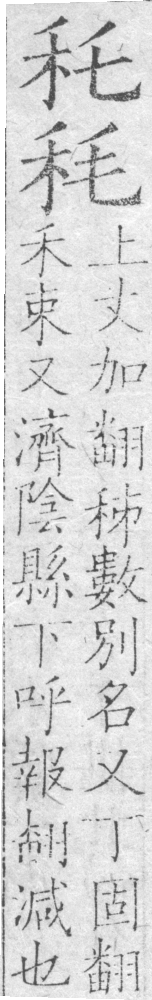 秅秏
上丈加翻秭數別名又丁固翻
禾束又濟陰縣下呼報翻減也